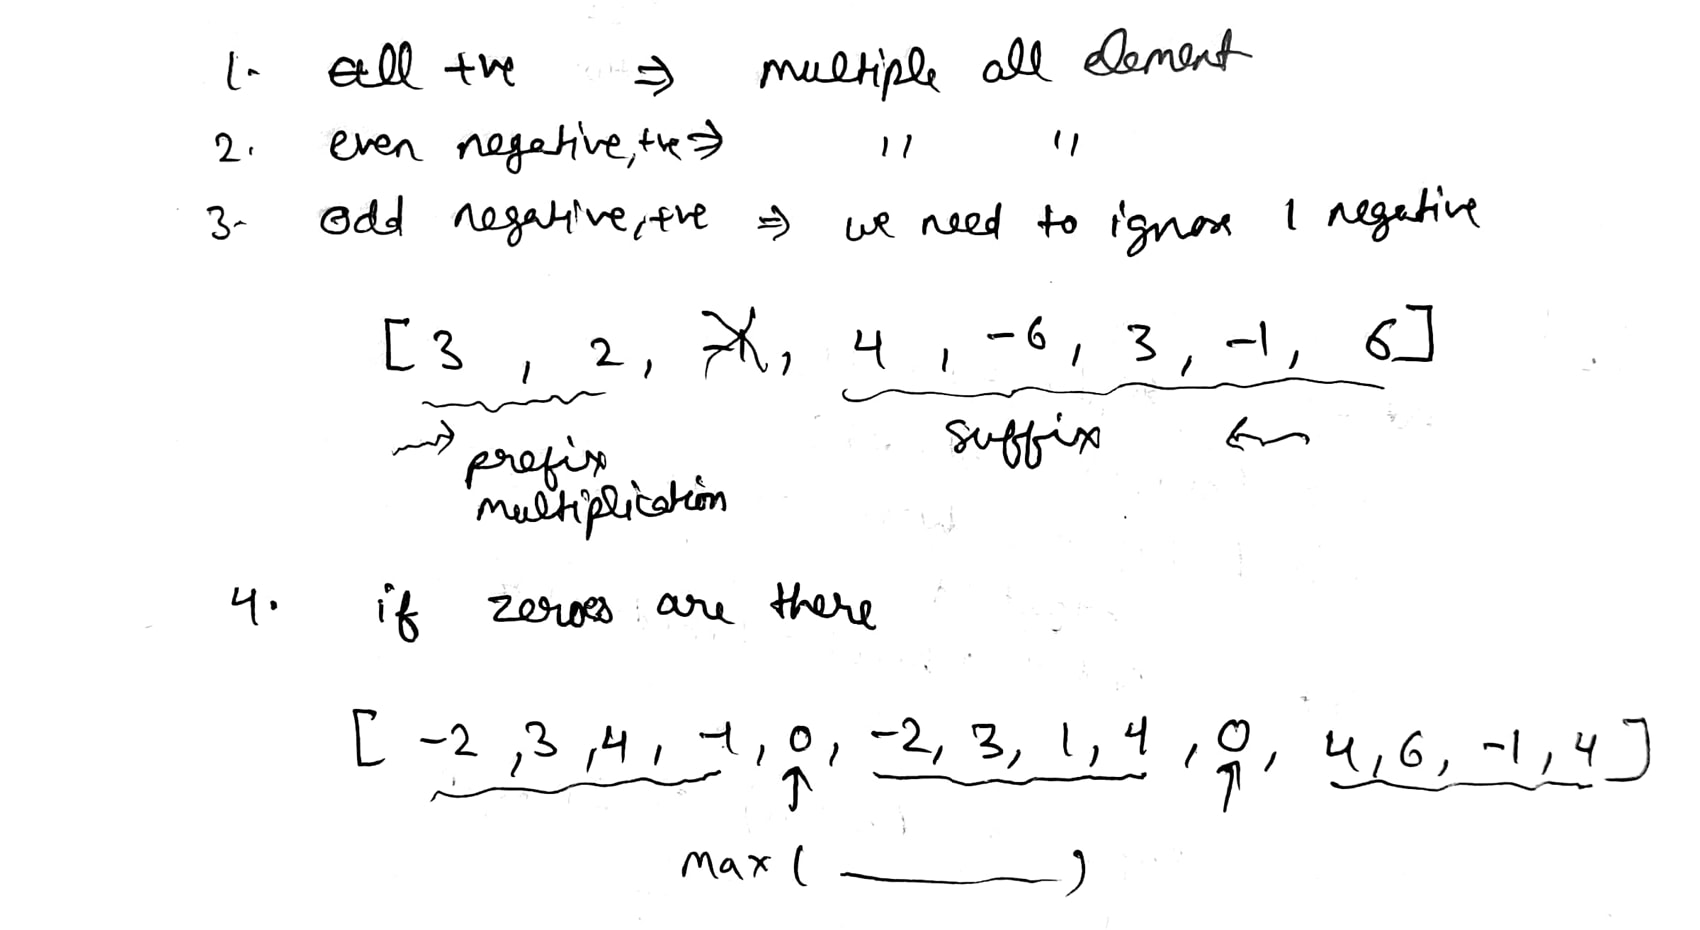 1. all +ve ⇒ multiple all element
2. even negative,+ve ⇒ " "
3. odd negative,+ve ⇒ we need to ignore 1 negative
[3, 2, -1, 4, -6, 3, -1, 6]
→ prefix suffix ←
multiplication
4. if zeroes are there
[-2,3,4,-1,0,-2,3,1,4,0,4,6,-1,4]
↑ ↑
max( ______ )